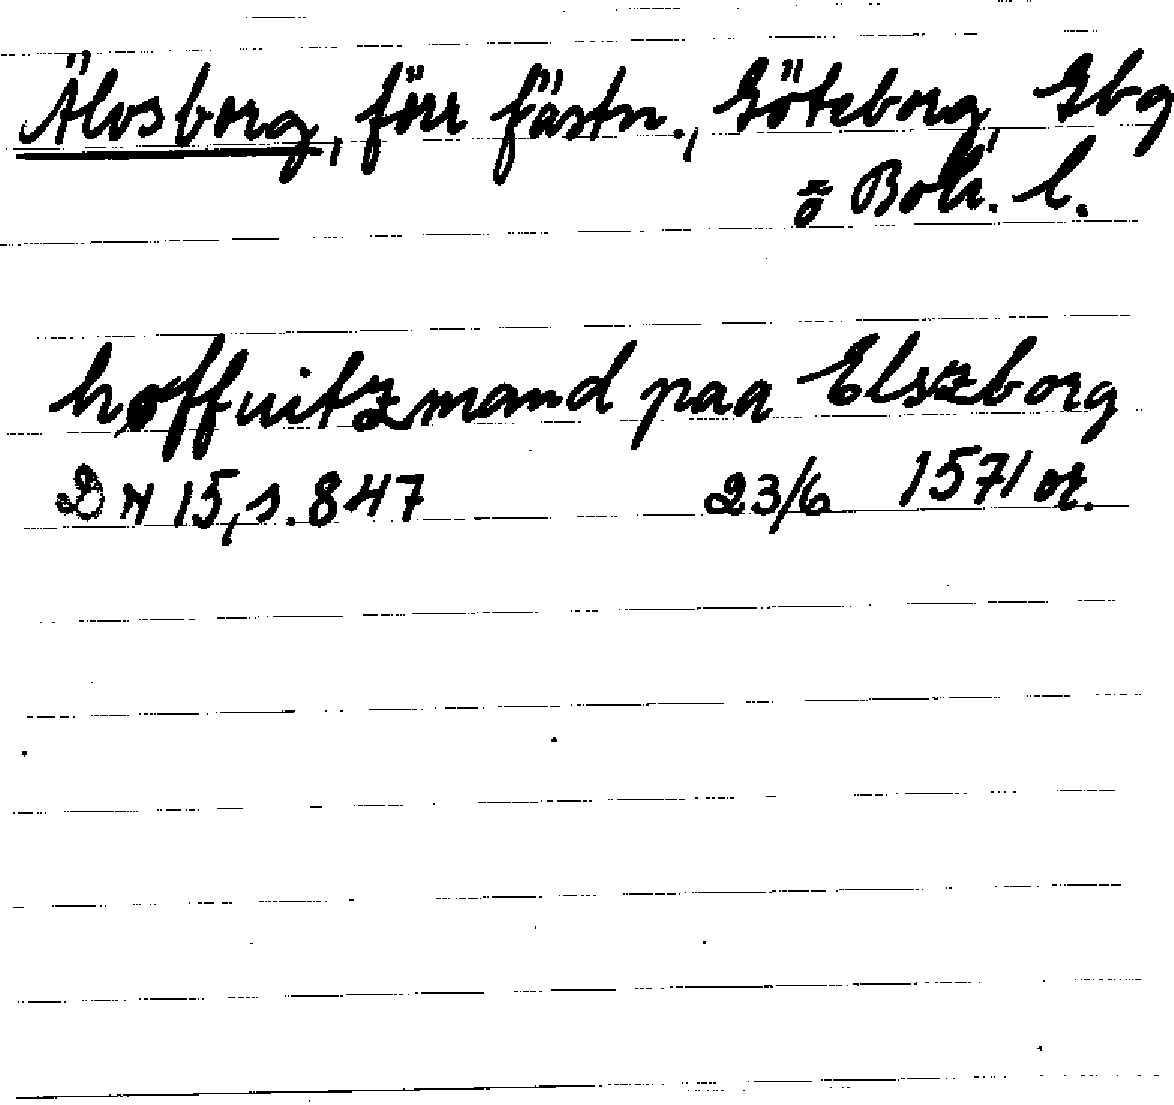 Älvsborg, förr fästn., Göteborg, Gbg
o Boh. l.
høffuitzmand paa Elszborg
DN 15, s. 847 23/6 1571 or.